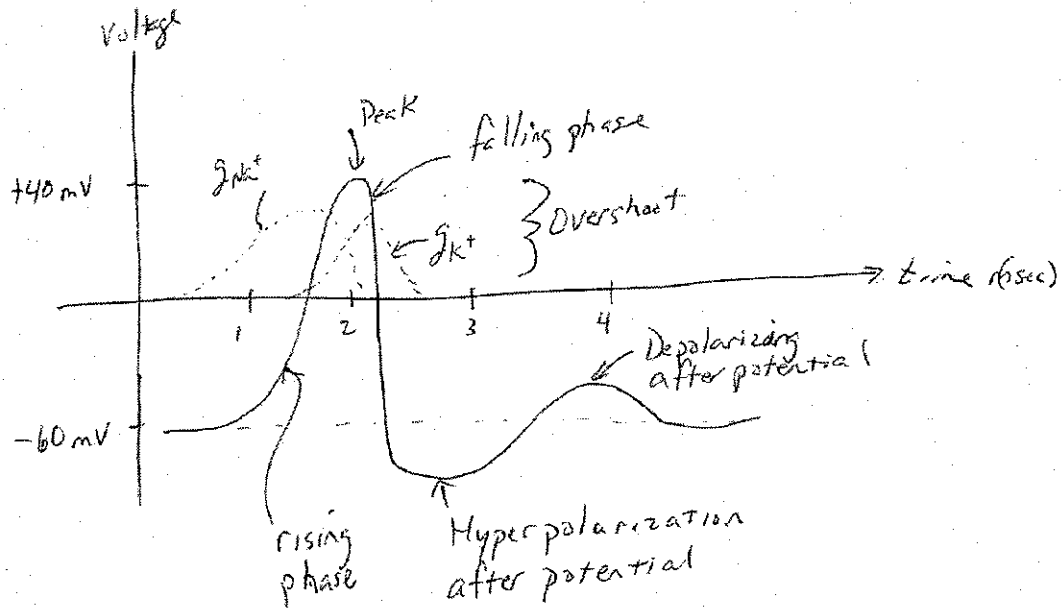 Voltage
Peak
falling phase
gNa+
+40 mV
Overshoot
gK+
time (msec)
1
2
3
4
Depolarizing
after potential
-60 mV
rising
phase
Hyperpolarization
after potential